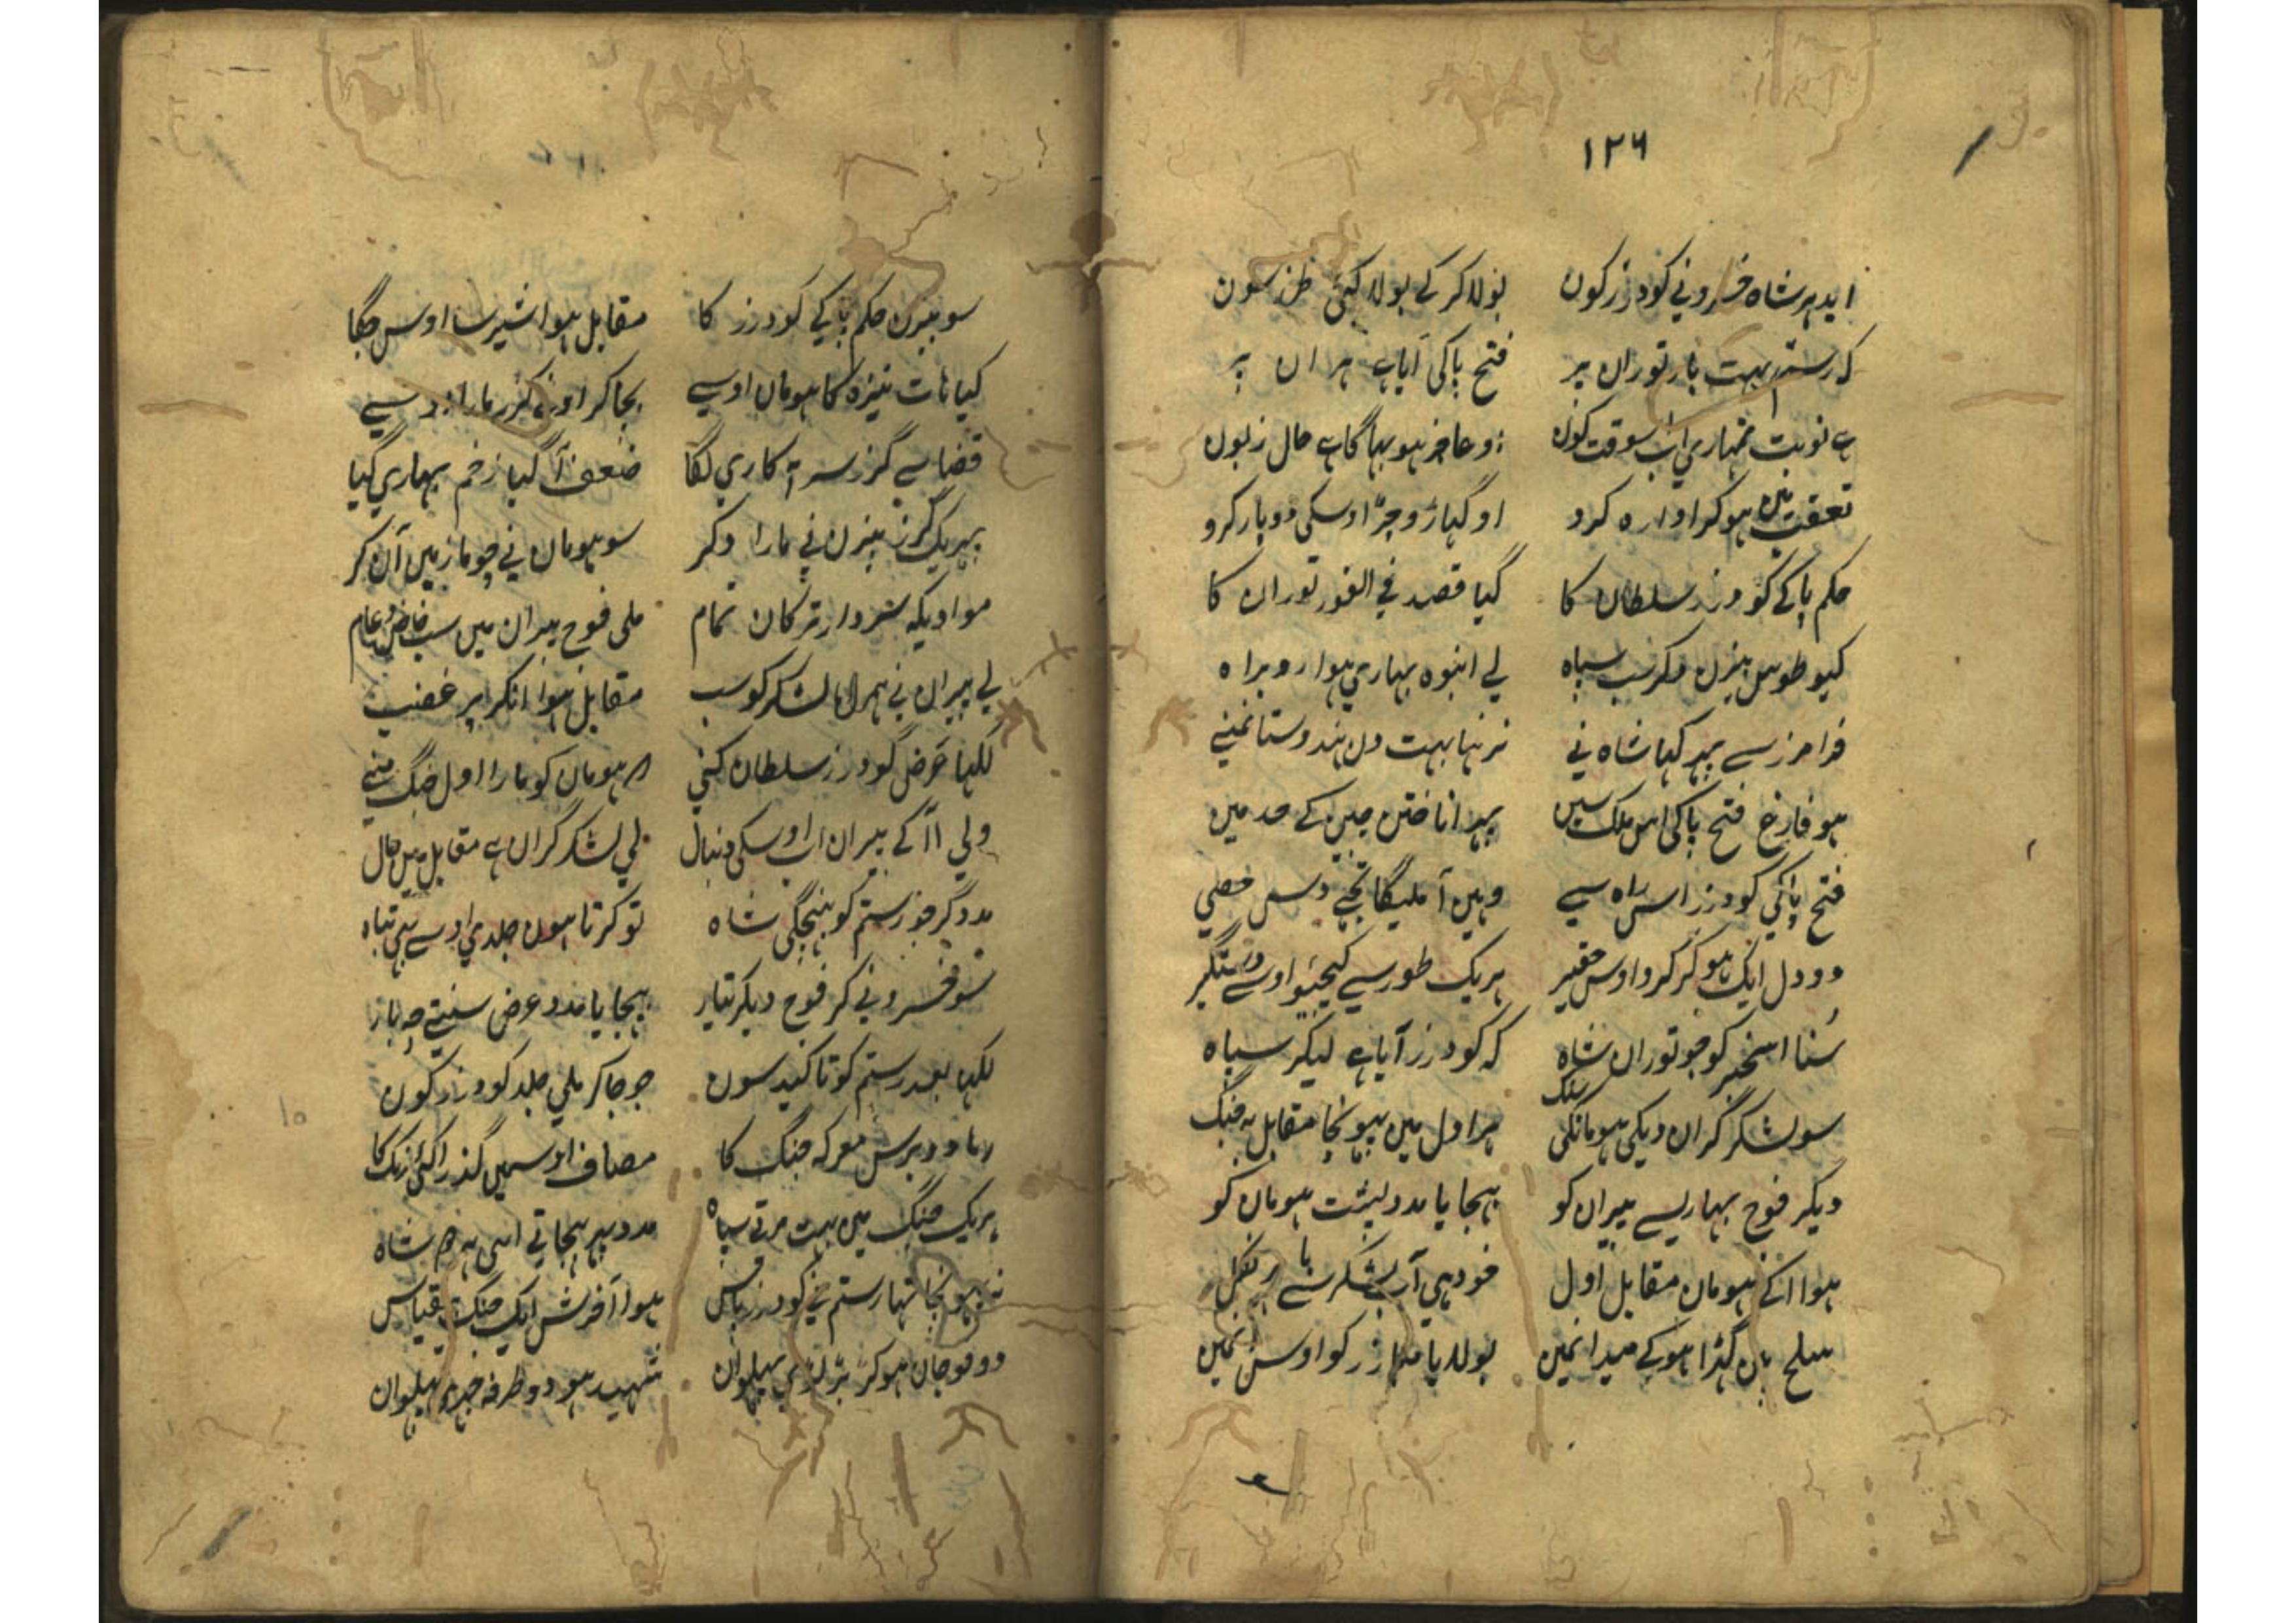 ۱۲۶
ایدہر شاہ خسرو نی کودرز کون بولا کر کے بولا کئی طرز سون
کہ رستم بہت بار توران پر فتح پاکی آیاہے ہر ان پر
ہے نوبت تمہاری اب سوقت کون عاجز ہو بہاگاہے حال زبون
ہو کر اوارہ کرد اوکہاڑو جڑ اوسکی دو بار کرو
حکم پاکے گودرز سلطان کا کیا قصد فی الفور توران کا
کیو طوس بیزن دکر سب سپاہ لے انبوہ بہاری ہوا رو براہ
فرامرز سے پہر کہا شاہ نی نرہنا بہت دل ہندوستا نمنے
ہو فارغ فتح پاکی اس ملک سیں پہر انا ختن چین کے حد میں
فتح پاکی کودرز اس راہ سے وہیں آ ملیگا تجے
دو دل ایک ہو کر کرو اوس حقیر ہریک طور سے کیجیو اوسے دستگیر
سنا اسخبر کو جو توران شاہ کہ کودرز آیاہے لیکر سپاہ
سو لشکر گران دیکی ہومانکی سنک ہراول میں پہونچا مقابل بہ جنگ
دیگر فوج بہاریسے پیران کو بہجایا مدد پشت ہومان کو
ہوا آکے ہومان مقابل اول خود ہی آپ لشکر سے نکل
سلح بان کہڑا ہوکے میدانمیں بولایا مبارز کو اوسن
سو بیزن حکم پاکے کودرز کا مقابل ہوا شیر سا اوس جگا
کیا ہات نیزہ کا ہومان اوسے بجا کر اونے گرز مارا
قضا سے گرز سر پہ کاری لگا ضعف آگیا زخم بہاری گیا
پہر یک گرز بیزن نی مارا دکر سو ہومان نی چوما زمین آن کر
موا دیکہ سردار ترکان تمام ملی فوج پیران میں سب خاص و عام
لے پیران نی ہمراہ لشکر کو سب مقابل ہوا آنکر پر غضب
لکہا عرض گودرز سلطان کنی ہومان کو مارا اول جنگ منے
ولی آکے پیران اب اوسکی دنبال لی لشکر گران ہے مقابل حال
مدد گر جو رستم کو بہنچگی شاہ تو کرتا ہون جلدی اوسے بہی تباہ
سو خسرو نی کر فوج دیگر تیار بہجایا مدد عرض سنتے چہ بار
لکہا بعد رستم کو تاکید سون جو جا کر ملی جلد گودرز کون
رہا دو برس معرکہ جنگ کا مصاف اوسمیں گذرا کئی رنک کا
ہریک جنگ میں بہت مرتے سپاہ مدد پہر بہجاتے اسی شاہ
نہ پہونچا تہا رستم گودرز پاس ہوا آخرش ایک جنگ قیاس
دو فوجان ہو کر لڑی پہلوان شہید ہو دو طرفہ پہلوان